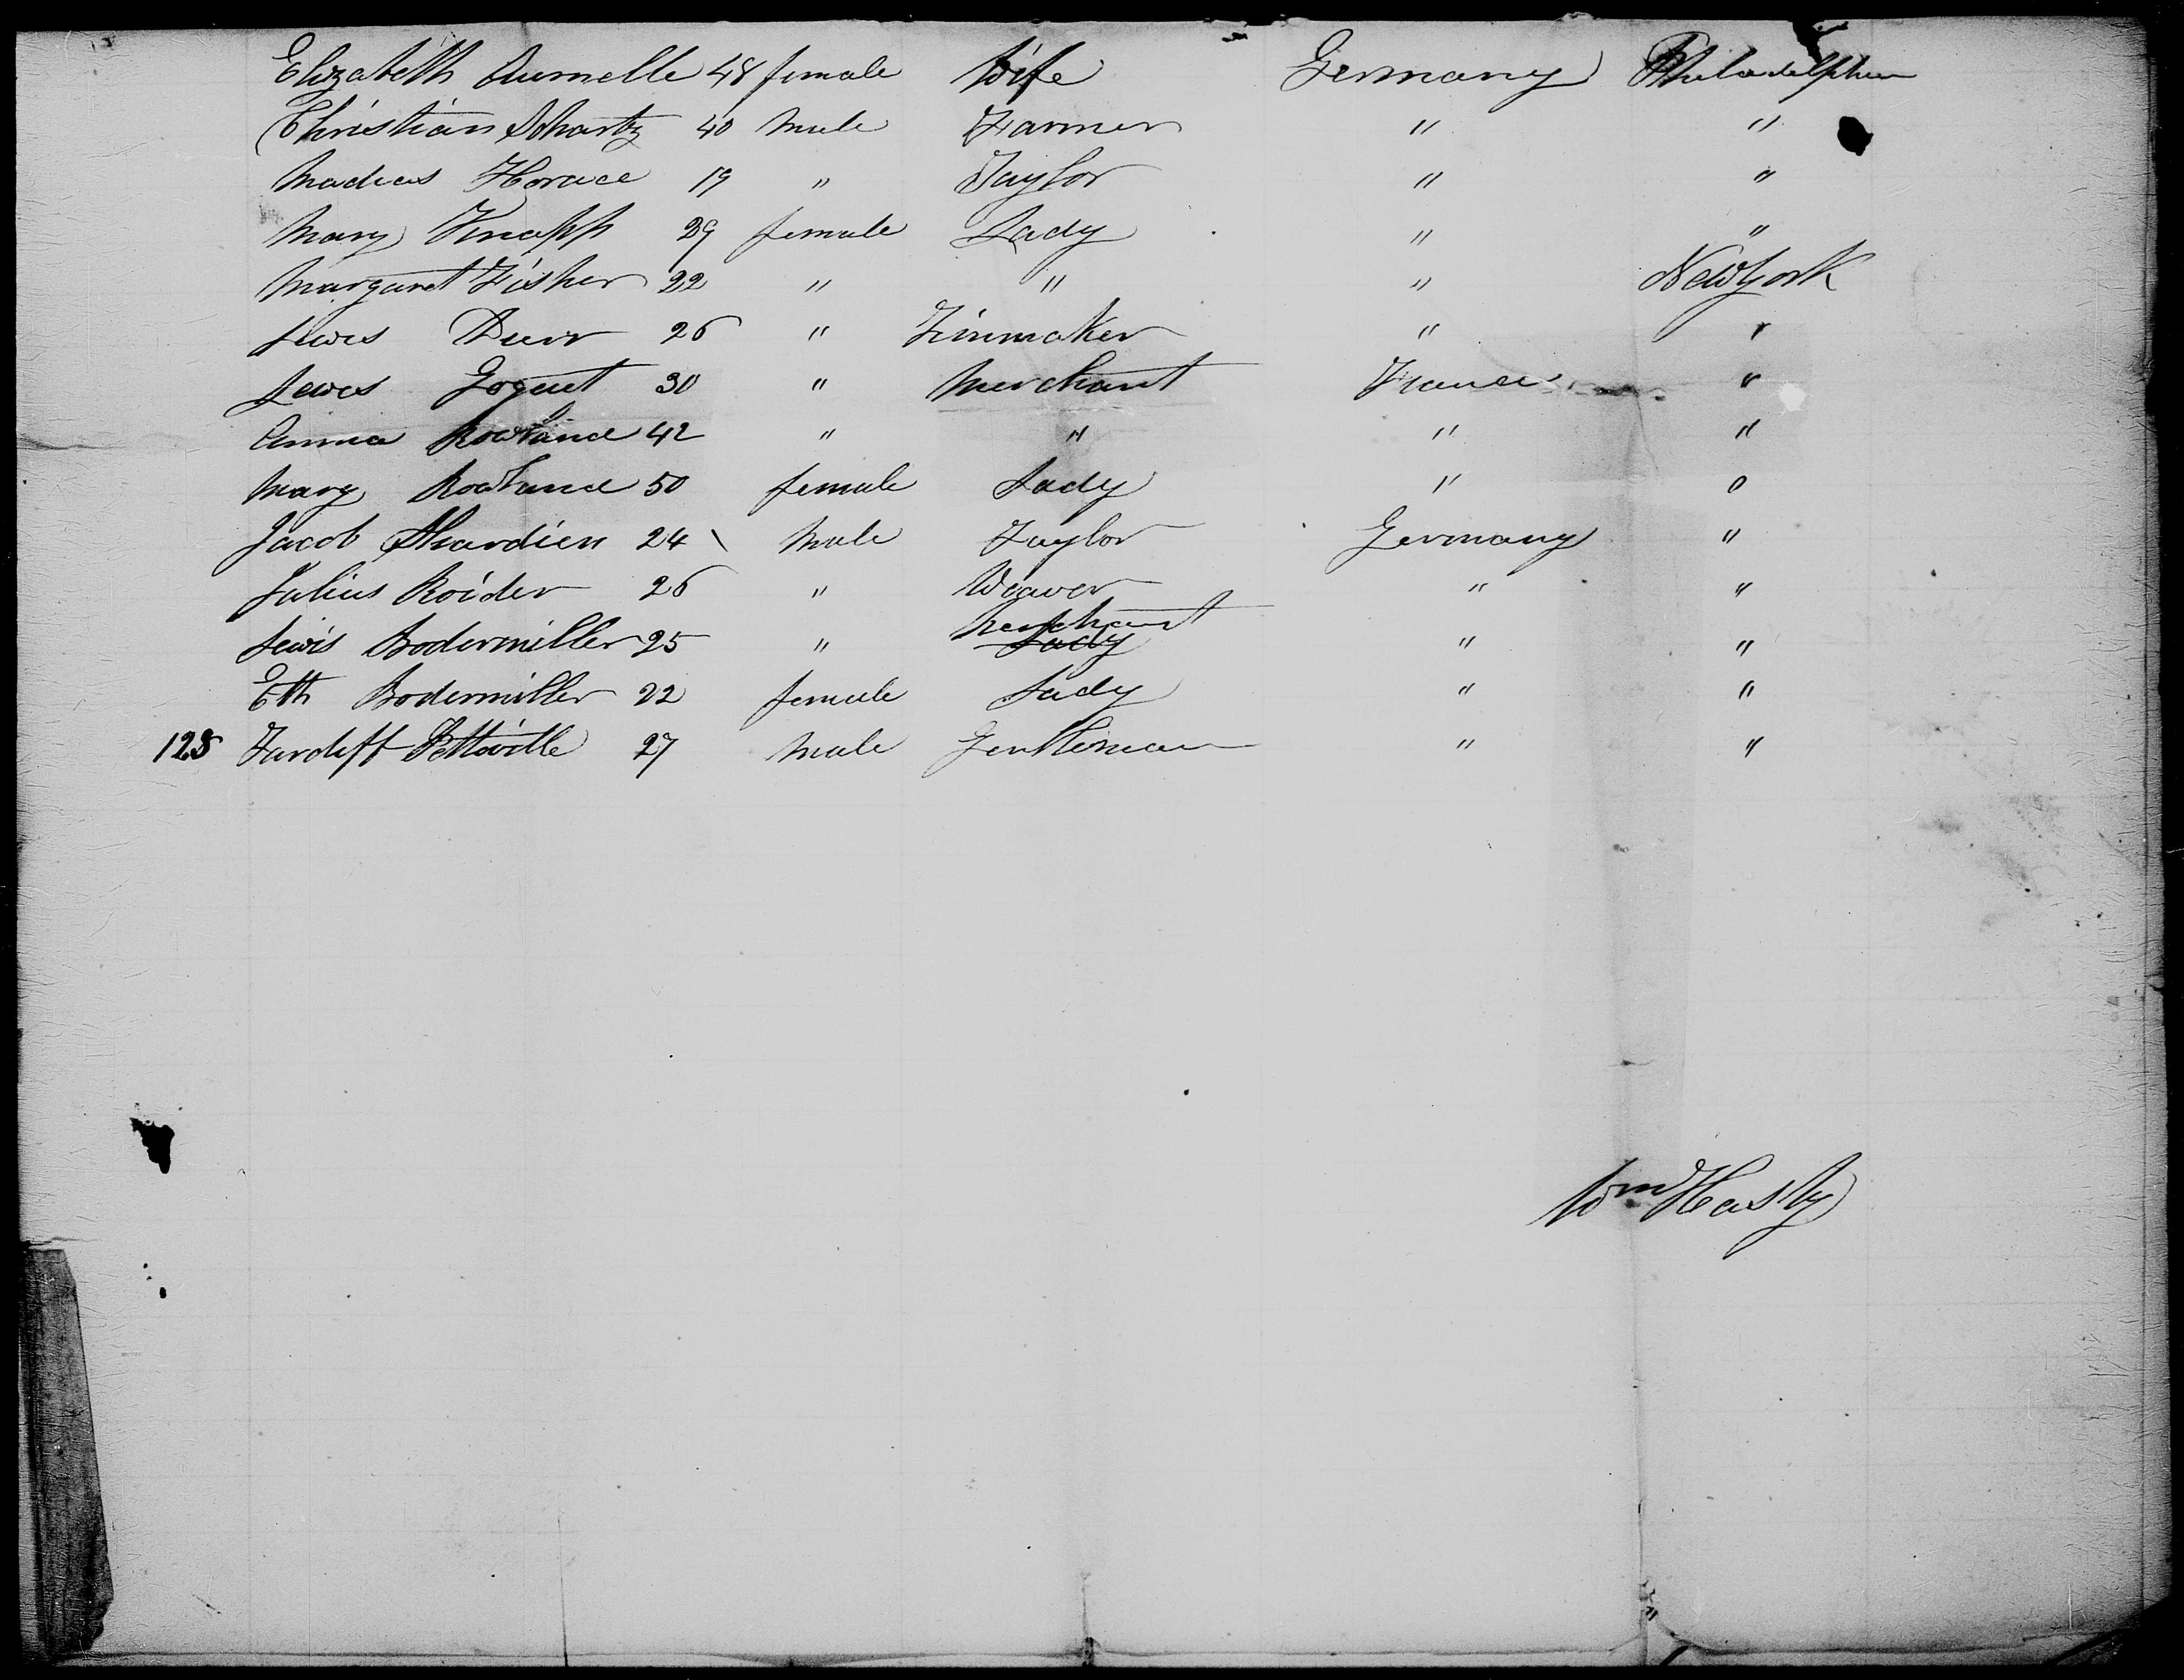 Elizabeth Aumelle 48 female Wife Germany Philadelphia
Christian Schartz 40 male Farmer " "
Madias Horace 19 " Taylor " "
Mary Knapp 29 female Lady " "
Margaret Fisher 22 " " " New York
Lewis Durr 26 " Tinmaker " "
Lewis Goguet 30 " Merchant France "
Anna Rowland 42 " " " "
Mary Rowland 50 female Lady " "
Jacob 24 Male Taylor Germany "
Julius Roider 26 " Weaver " "
Lewis Bodermiller 25 " Merchant Lady " "
Eth Bodermiller 22 female Lady " "
128 27 Male Gentleman " "
Wm Hasty